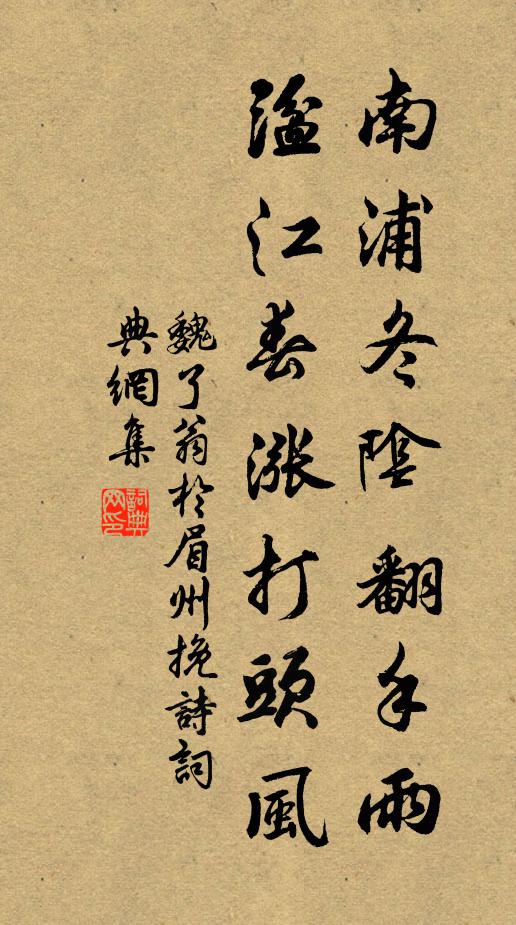 南浦冬陰翻手雨
湓江春漲打頭風
魏了翁於眉州挽詩詞
典網集
詞典網印